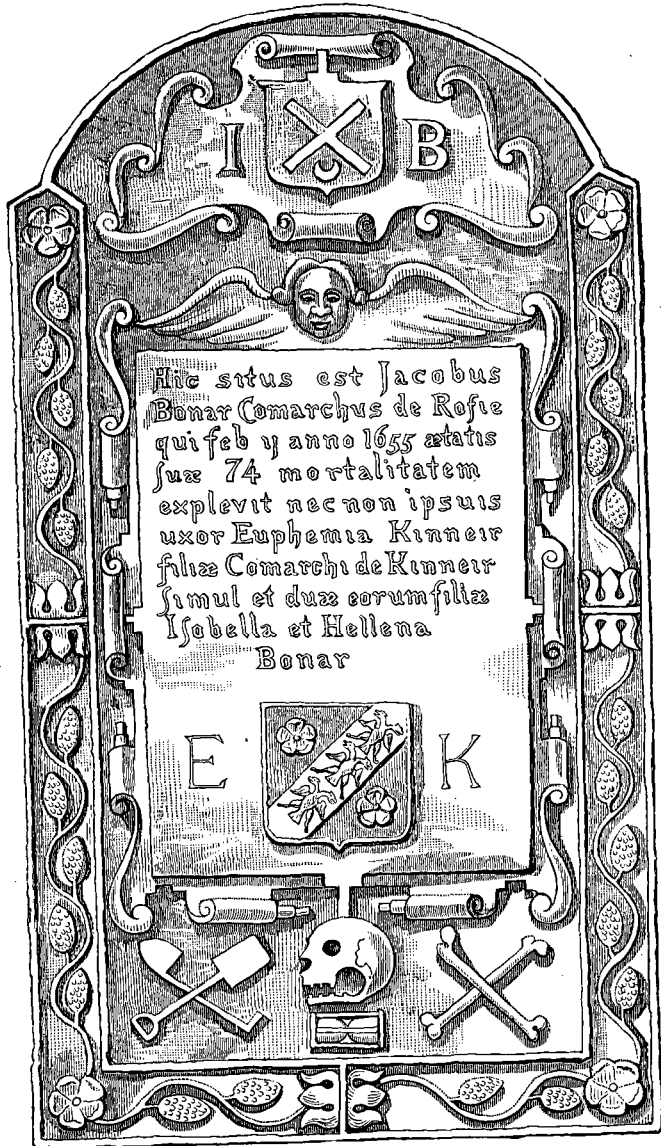 I B
Hic situs est Jacobus
Bonar Comarchus de Rosie
qui feb ij anno 1655 ætatis
ſuæ 74 mortalitatem
explevit nec non ipsuis
uxor Euphemia Kinneir
filiæ Comarchi de Kinneir
ſimul et duæ eorum filiæ
Iſobella et Hellena
Bonar
E K